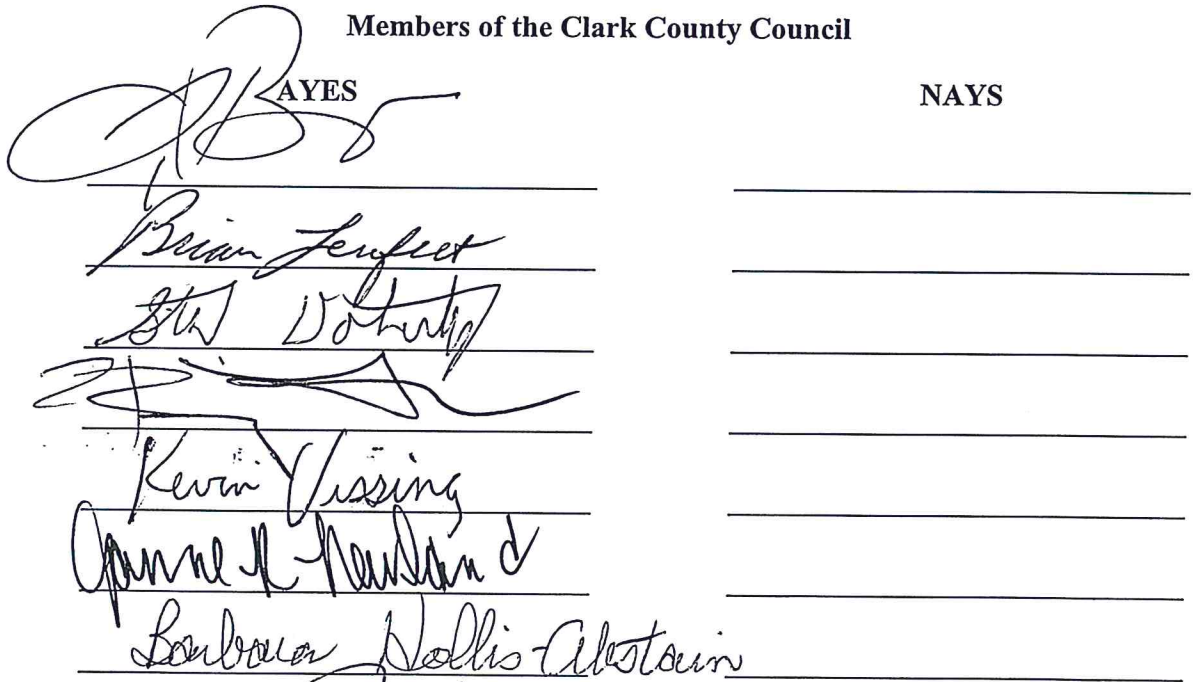 Members of the Clark County Council
AYES NAYS
Brian Lenfert
Doherty
Kevin Vissing
Newland
Barbara Hollis-Abstain